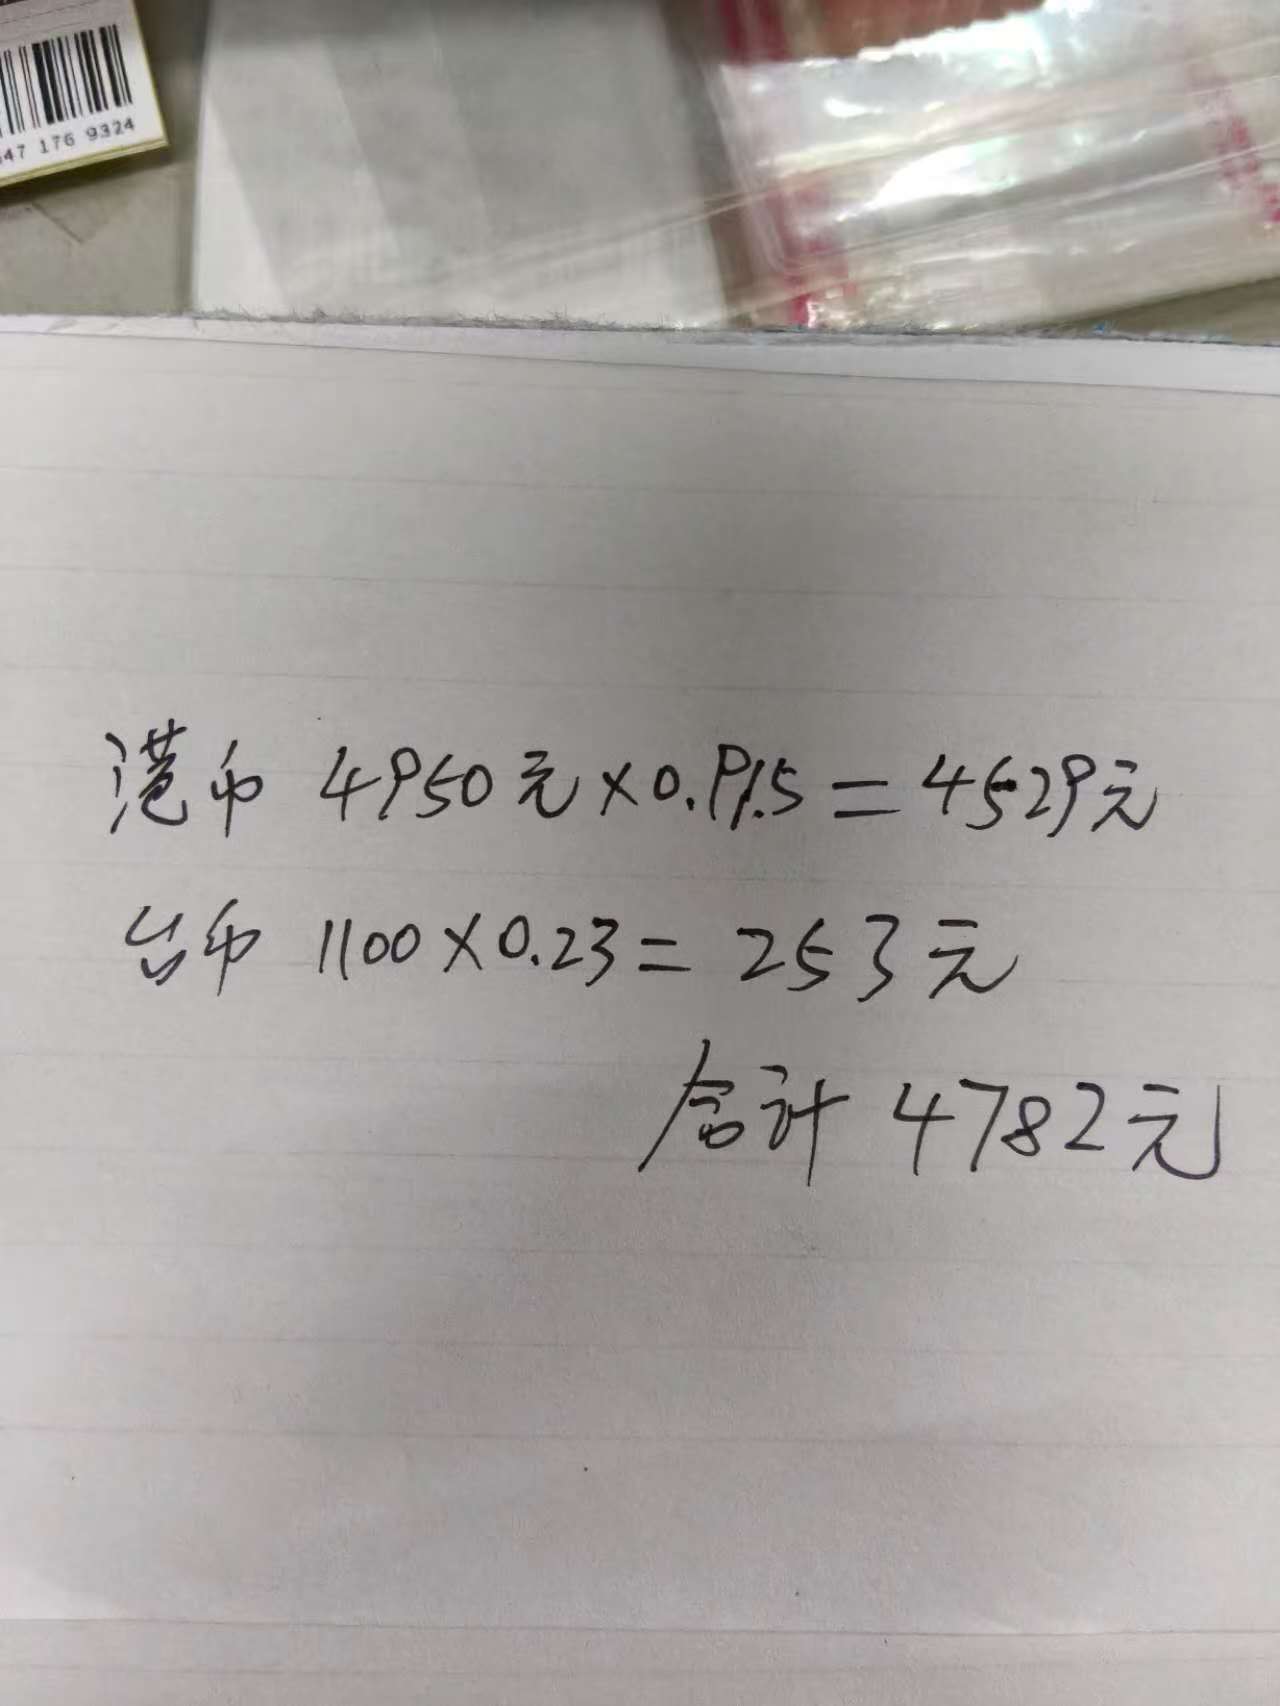 47 176 9324
港币 4950元×0.915=4529元
台币 1100×0.23=253元
合计 4782元